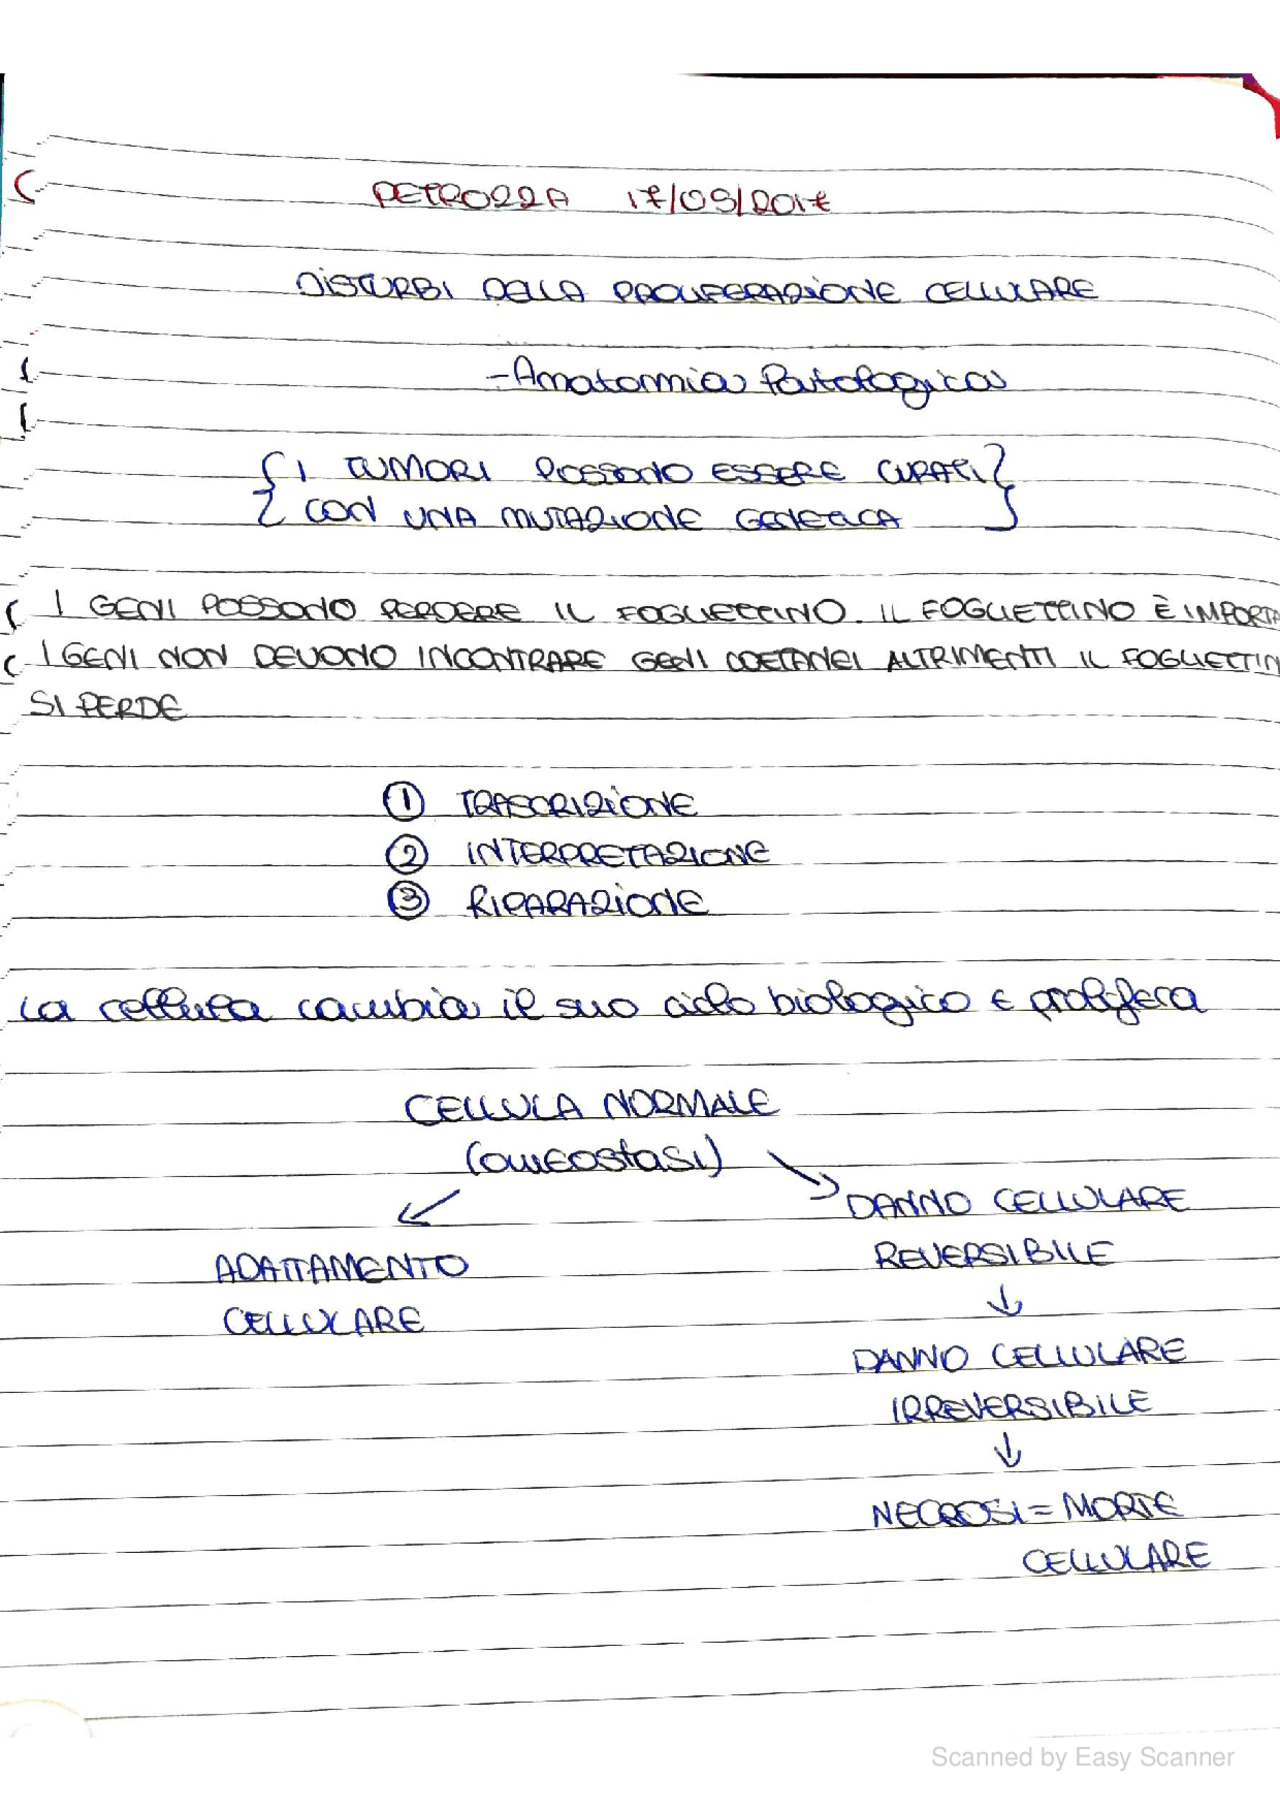 PETROZZA 17/09/2017
DISTURBI DELLA PROLIFERAZIONE CELLULARE
- Anatomia Patologica
{ I TUMORI POSSONO ESSERE CURATI }
{ CON UNA MUTAZIONE GENETICA }
I GENI POSSONO PERDERE IL FOGLIETTINO. IL FOGLIETTINO È IMPORTA
I GENI NON DEVONO INCONTRARE GENI COETANEI ALTRIMENTI IL FOGLIETTIN
SI PERDE
① TRASCRIZIONE
② INTERPRETAZIONE
③ RIPARAZIONE
La cellula cambia il suo ciclo biologico e prolifera
CELLULA NORMALE
(omeostasi)
DANNO CELLULARE
REVERSIBILE
ADATTAMENTO
CELLULARE
DANNO CELLULARE
IRREVERSIBILE
NECROSI = MORTE
CELLULARE
Scanned by Easy Scanner